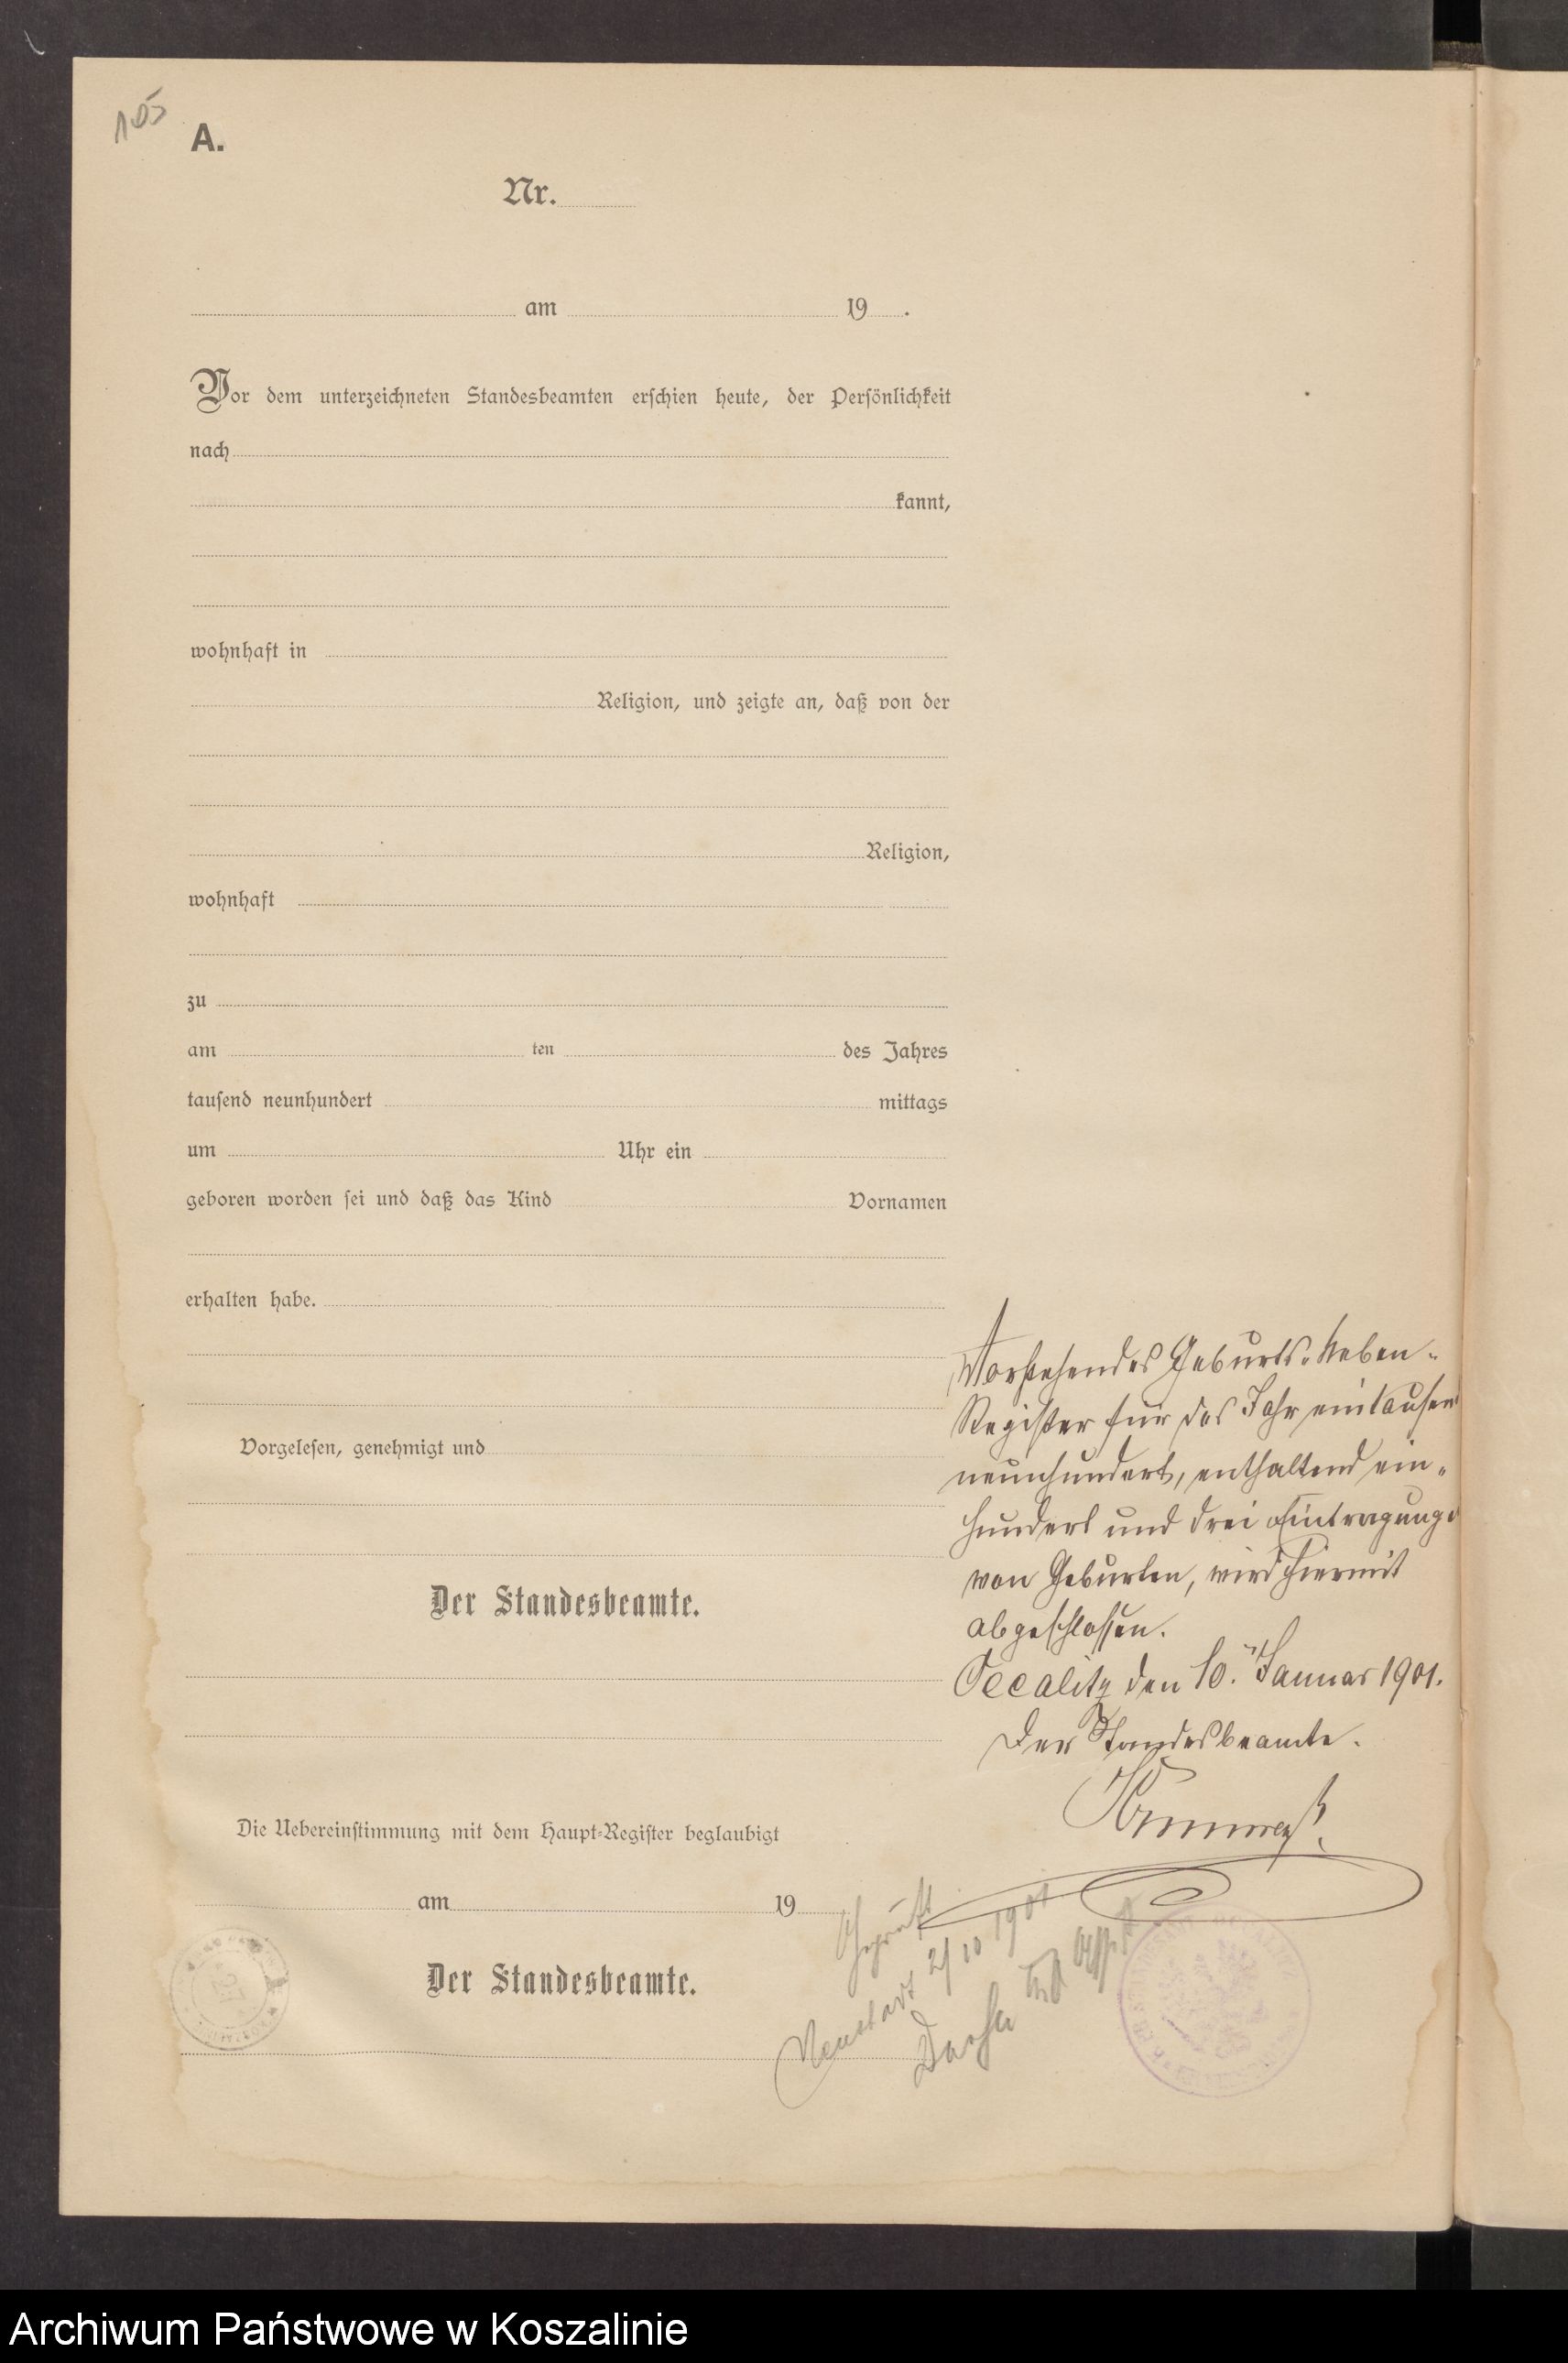 105
A.
Nr.
am 19 .
Vor dem unterzeichneten Standesbeamten erschien heute, der Persönlichkeit
nach
kannt,
wohnhaft in
Religion, und zeigte an, daß von der
Religion,
wohnhaft
zu
am ten des Jahres
tausend neunhundert mittags
um Uhr ein
geboren worden sei und daß das Kind Vornamen
erhalten habe.
Vorgelesen, genehmigt und
Der Standesbeamte.
Die Uebereinstimmung mit dem Haupt-Register beglaubigt
am 19
Der Standesbeamte.
Vorstehendes Geburts-Neben-
Register für das Jahr eintausend
neunhundert, enthaltend ein-
hundert und drei Eintragungen
von Geburten, wird hiermit
abgeschlossen.
den 10. Januar 1901.
Der Standesbeamte.
Geprüft
2/10 1901
Archiwum Państwowe w Koszalinie